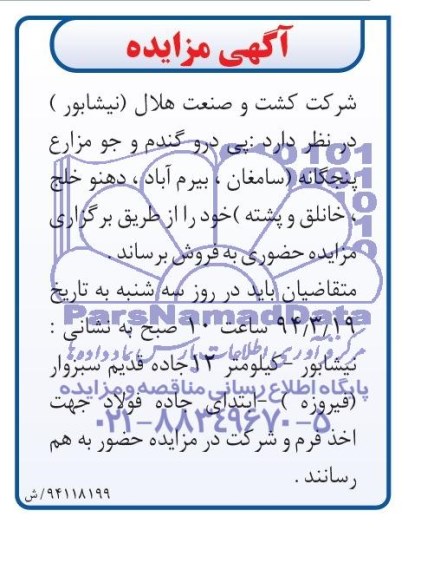 آگهی مزایده
شرکت کشت و صنعت هلال (نیشابور )
در نظر دارد :پی درو گندم و جو مزارع
پنجگانه (سامغان ، بیرم آباد ، دهنو خلج
، خانلق و پشته )خود را از طریق برگزاری
مزایده حضوری به فروش برساند .
متقاضیان باید در روز سه شنبه به تاریخ
ParsNamadData
۹۴/۳/۱۹ ساعت ۱۰ صبح به نشانی :
نیشابور -کیلومتر ۱۲جاده قدیم سبزوار
پایگاه اطلاع رسانی مناقصه و مزایده
(فیروزه ) -ابتدای جاده فولاد جهت
۰۲۱-۸۸۳۴۹۶۷۰-۵
اخذ فرم و شرکت در مزایده حضور به هم
رسانند .
۹۴۱۱۸۱۹۹/ش